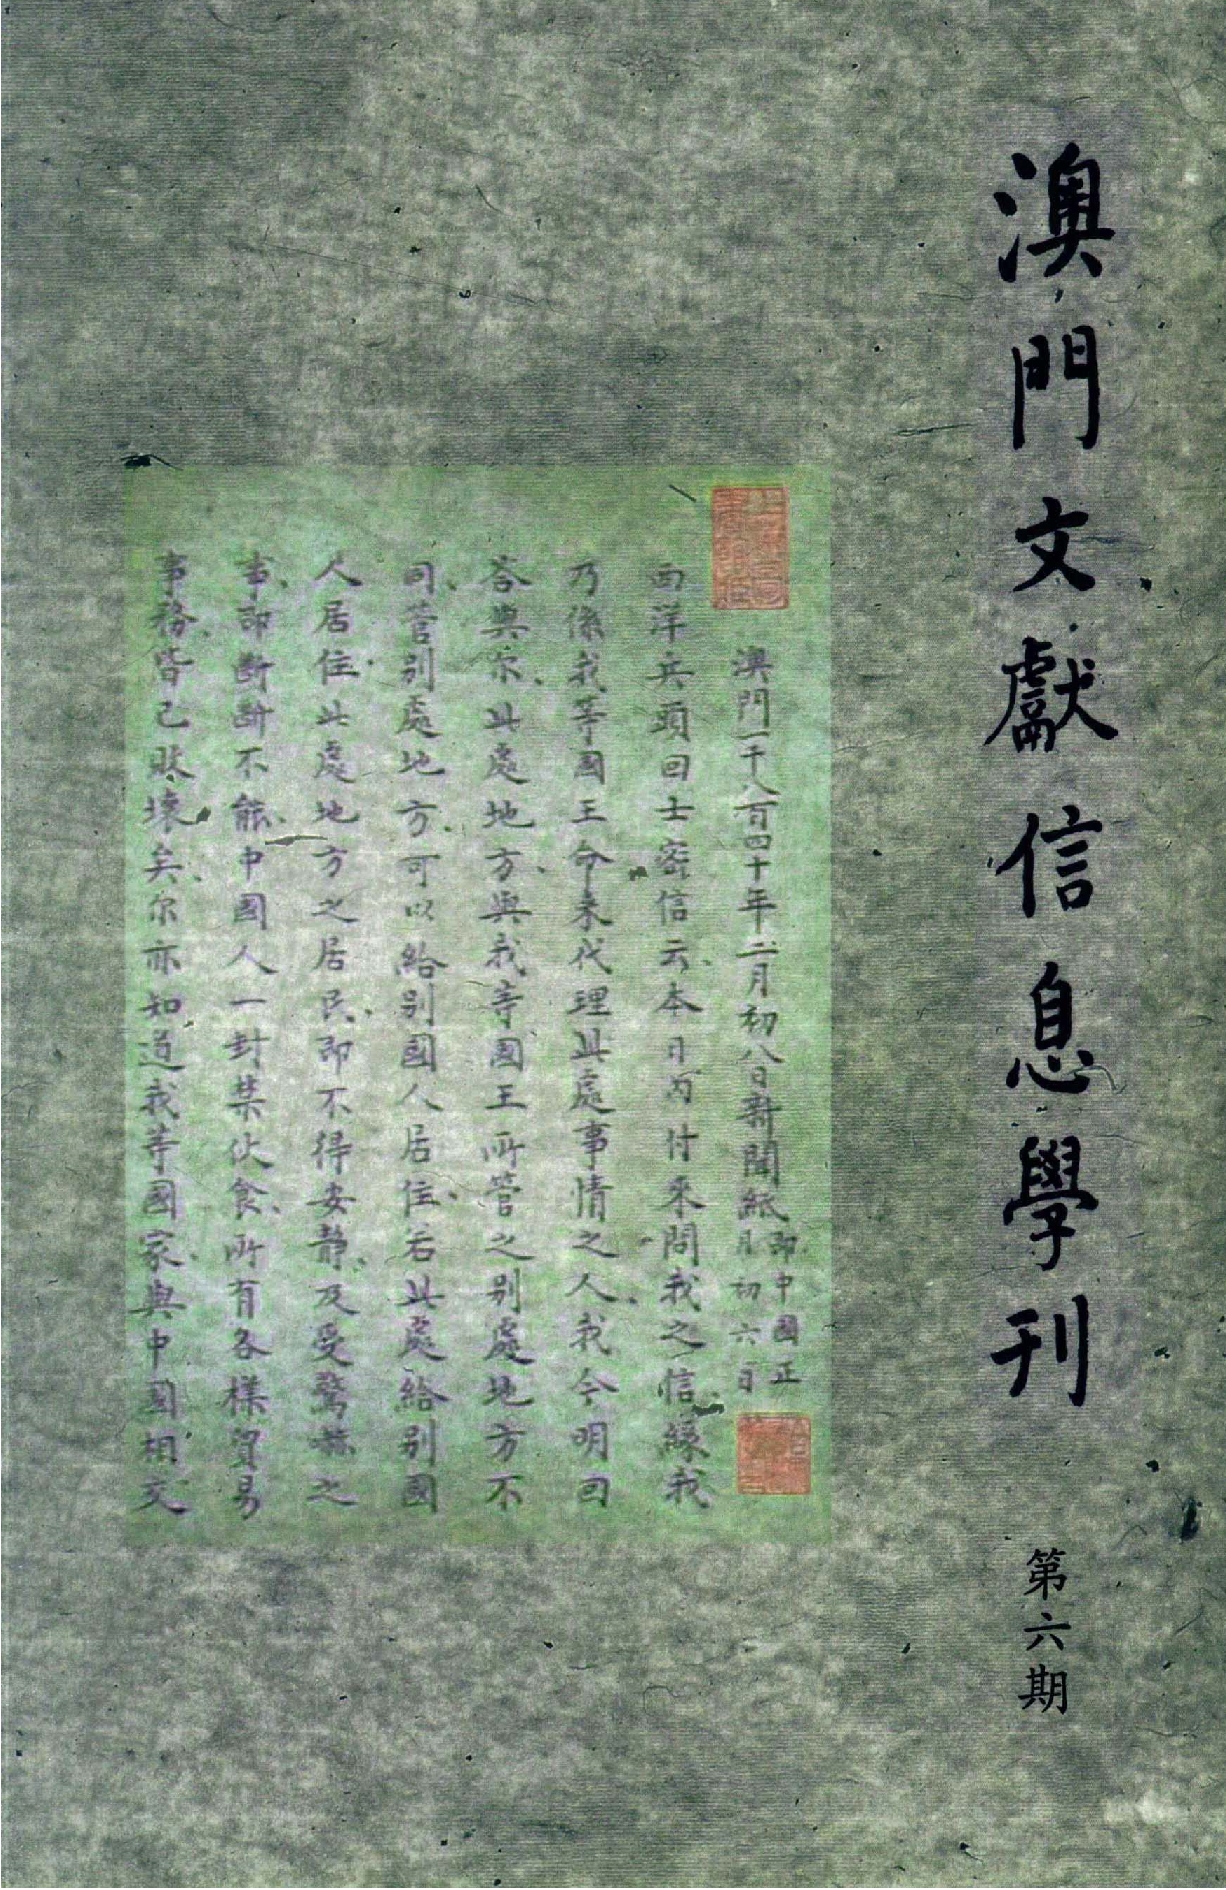 澳門文獻信息學刊
第六期
澳門一千八百四十年二月初八日新聞紙即中國正月初六日
西洋兵頭回士密信云本日內付來問我之信緣我
乃係我等國王命來代理此處事情之人我今明回
答與尔此處地方與我等國王所管之別處地方不
同管別處地方可以給別國人居住若此處給別國
人居住此處地方之居民即不得安静及受驚嚇之
事即斷斷不能中國人一封禁伙食所有各樣貿易
事務皆已敗壞矣尔亦知道我等國家與中國相交